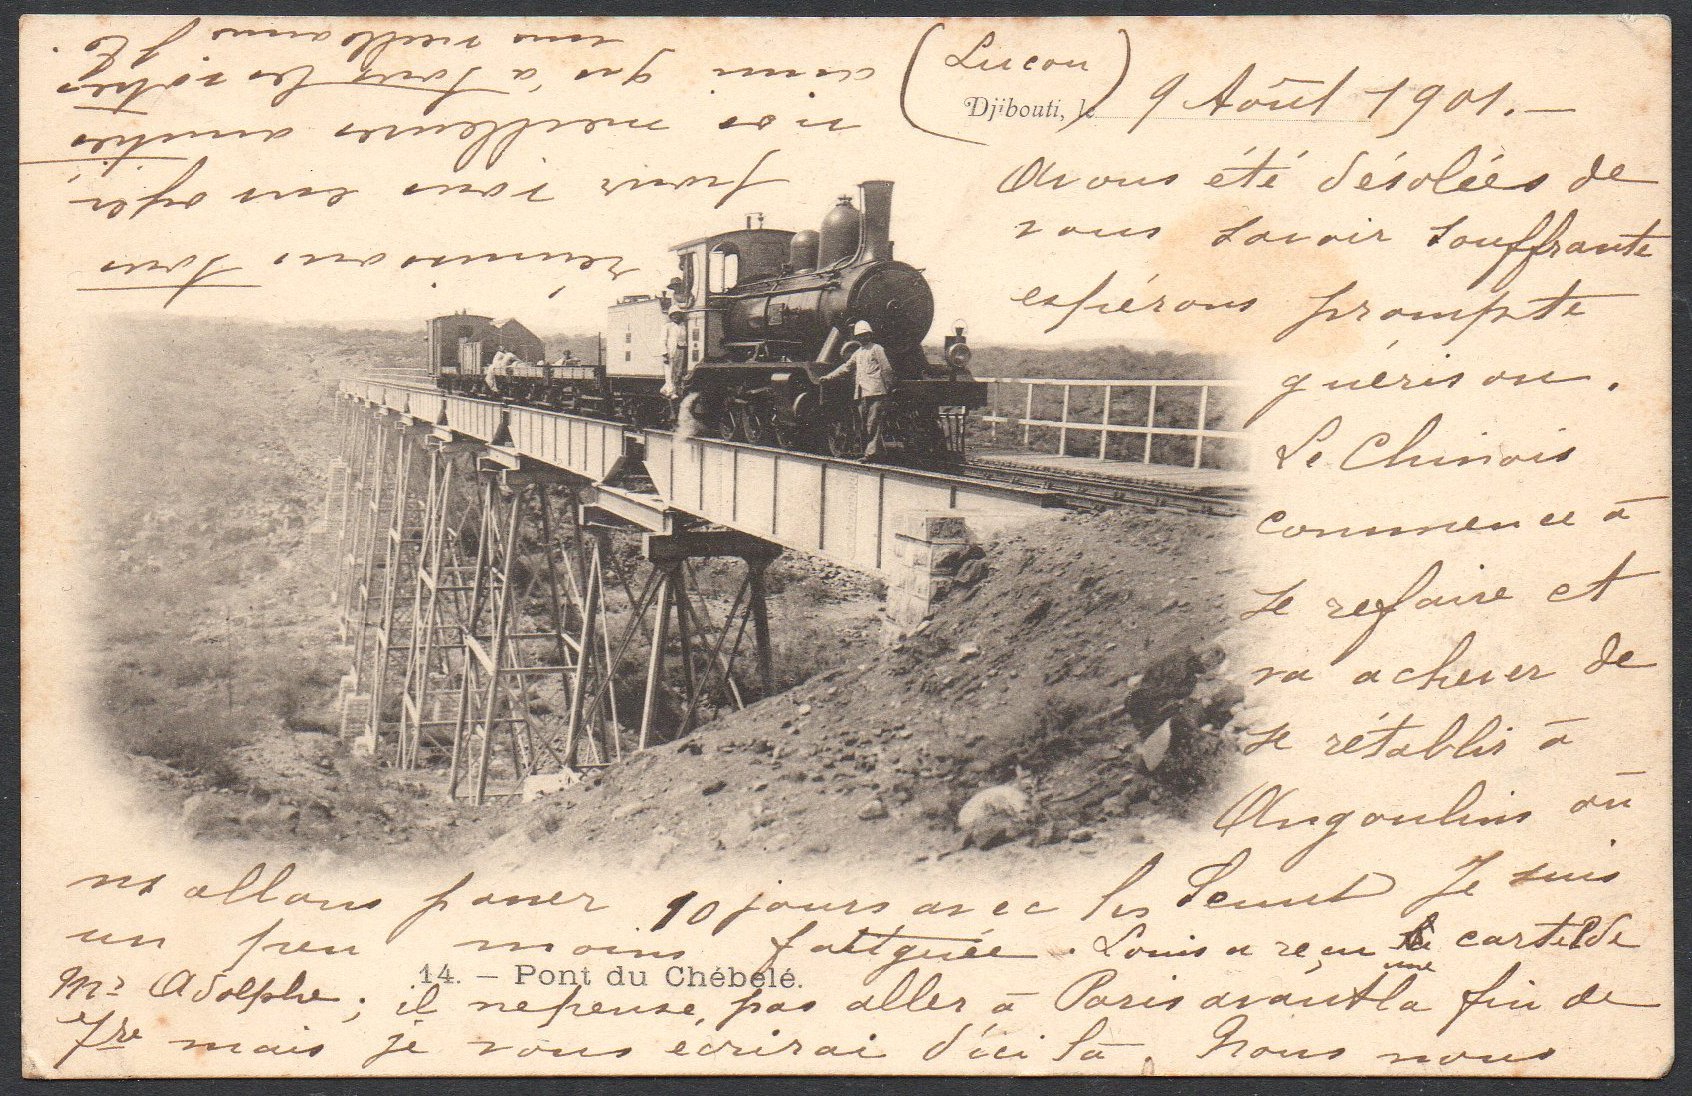 (Luçon)
Djibouti, le 9 Août 1901. —
Avons été désolées de
vous savoir souffrante
espérons prompte
guérison.
Le Chinois
commence à
se refaire et
va achever de
se rétablir à
Angoulins où
ns allons passer 10 jours avec les Je suis
un peu moins fatiguée. Louis a reçu une carte de
14. — Pont du Chébelé.
Mr Adolphe; il ne pense pas aller à Paris avant la fin de
7bre mais je vous écrirai d'ici là. Nous nous
réunissons tous
pour vous envoyer,
nos meilleures amitiés
ainsi qu'à tous les vôtres